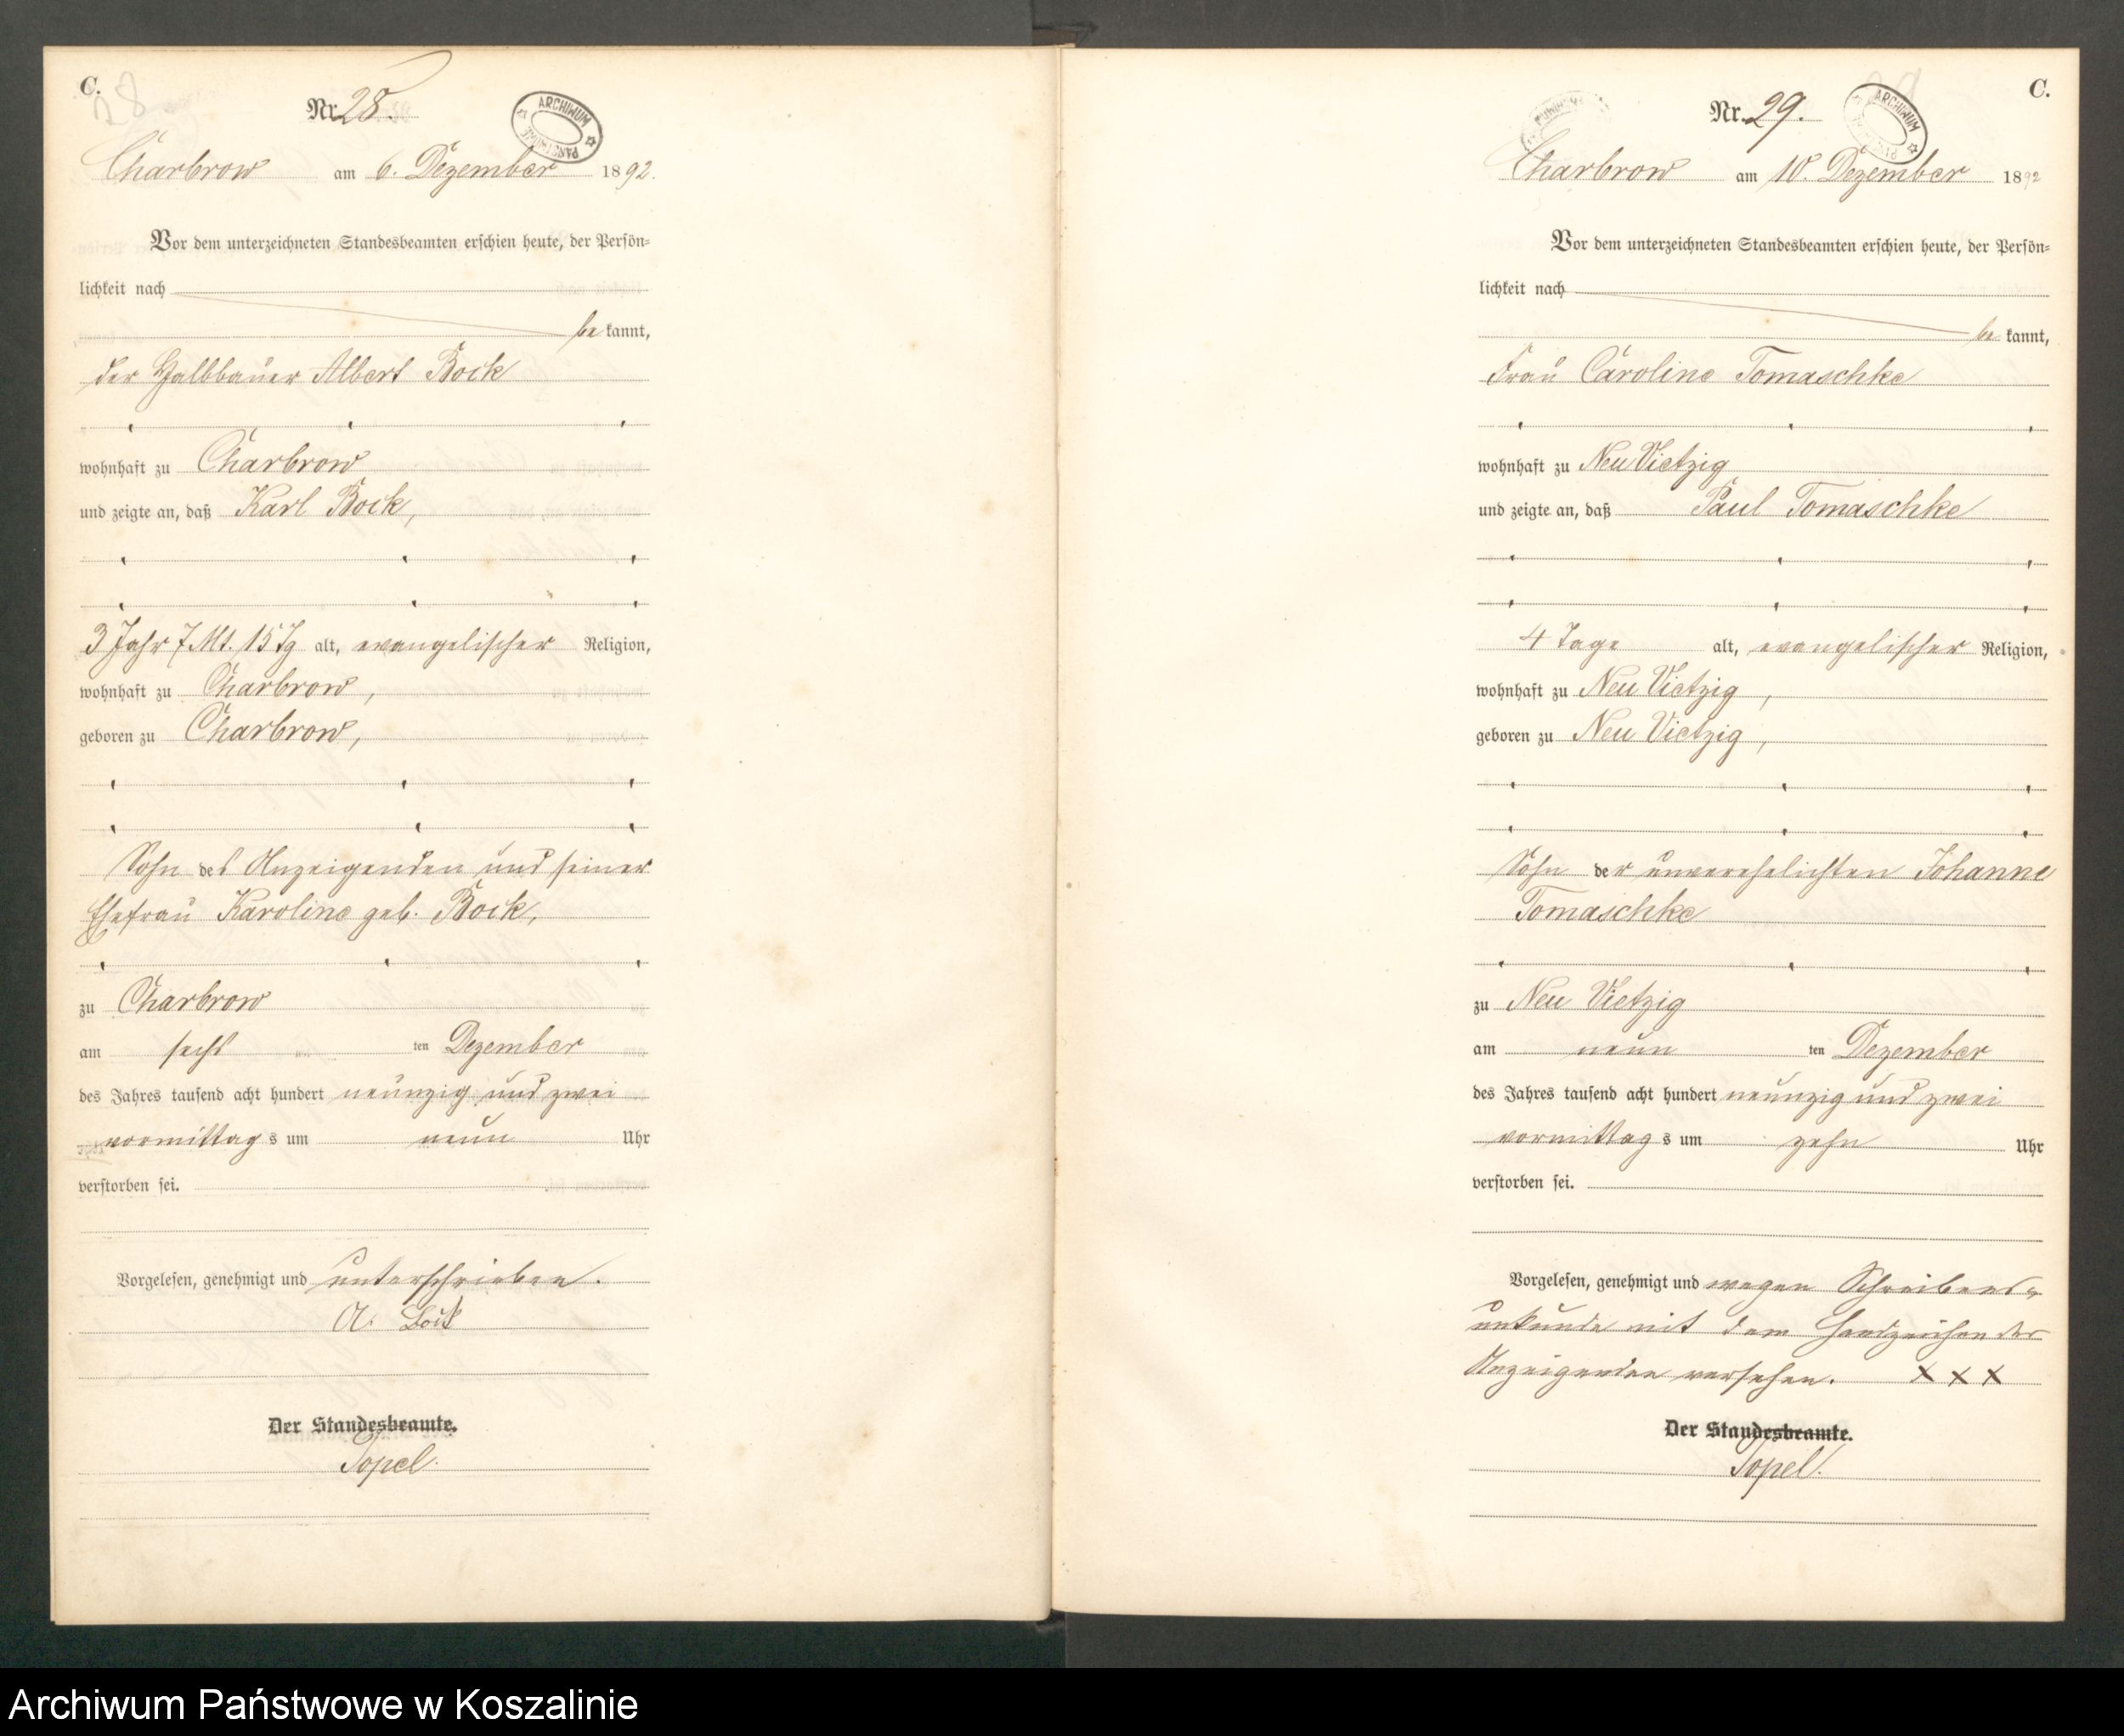 C.
28
Nr. 28.
ARCHIWUM PAŃSTWOWE
Charbrow am 6. Dezember 1892.
Vor dem unterzeichneten Standesbeamten erschien heute, der Persön=
lichkeit nach
be kannt,
der Halbbauer Albert Bock
wohnhaft zu Charbrow
und zeigte an, daß Karl Bock,
3 Jahr 7 Mt. 15 Tg alt, evangelischer Religion,
wohnhaft zu Charbrow,
geboren zu Charbrow,
Sohn des Anzeigenden und seiner
Ehefrau Karoline geb. Bock,
zu Charbrow
am sechs ten Dezember
des Jahres tausend acht hundert neunzig und zwei
vormittag s um neun Uhr
verstorben sei.
Vorgelesen, genehmigt und unterschrieben.
A. Bock
Der Standesbeamte.
Topel.
C.
29
Nr. 29.
ARCHIWUM
Charbrow am 10. Dezember 1892
Vor dem unterzeichneten Standesbeamten erschien heute, der Persön=
lichkeit nach
be kannt,
Frau Caroline Tomaschke
wohnhaft zu Neu Vietzig
und zeigte an, daß Paul Tomaschke
4 Tage alt, evangelischer Religion,
wohnhaft zu Neu Vietzig,
geboren zu Neu Vietzig,
Sohn der unverehelichten Johanne
Tomaschke
zu Neu Vietzig
am neun ten Dezember
des Jahres tausend acht hundert neunzig und zwei
vormittag s um zehn Uhr
verstorben sei.
Vorgelesen, genehmigt und wegen Schreibens=
unkunde mit dem Handzeichen der
Anzeigenden versehen. X X X
Der Standesbeamte.
Topel.
Archiwum Państwowe w Koszalinie